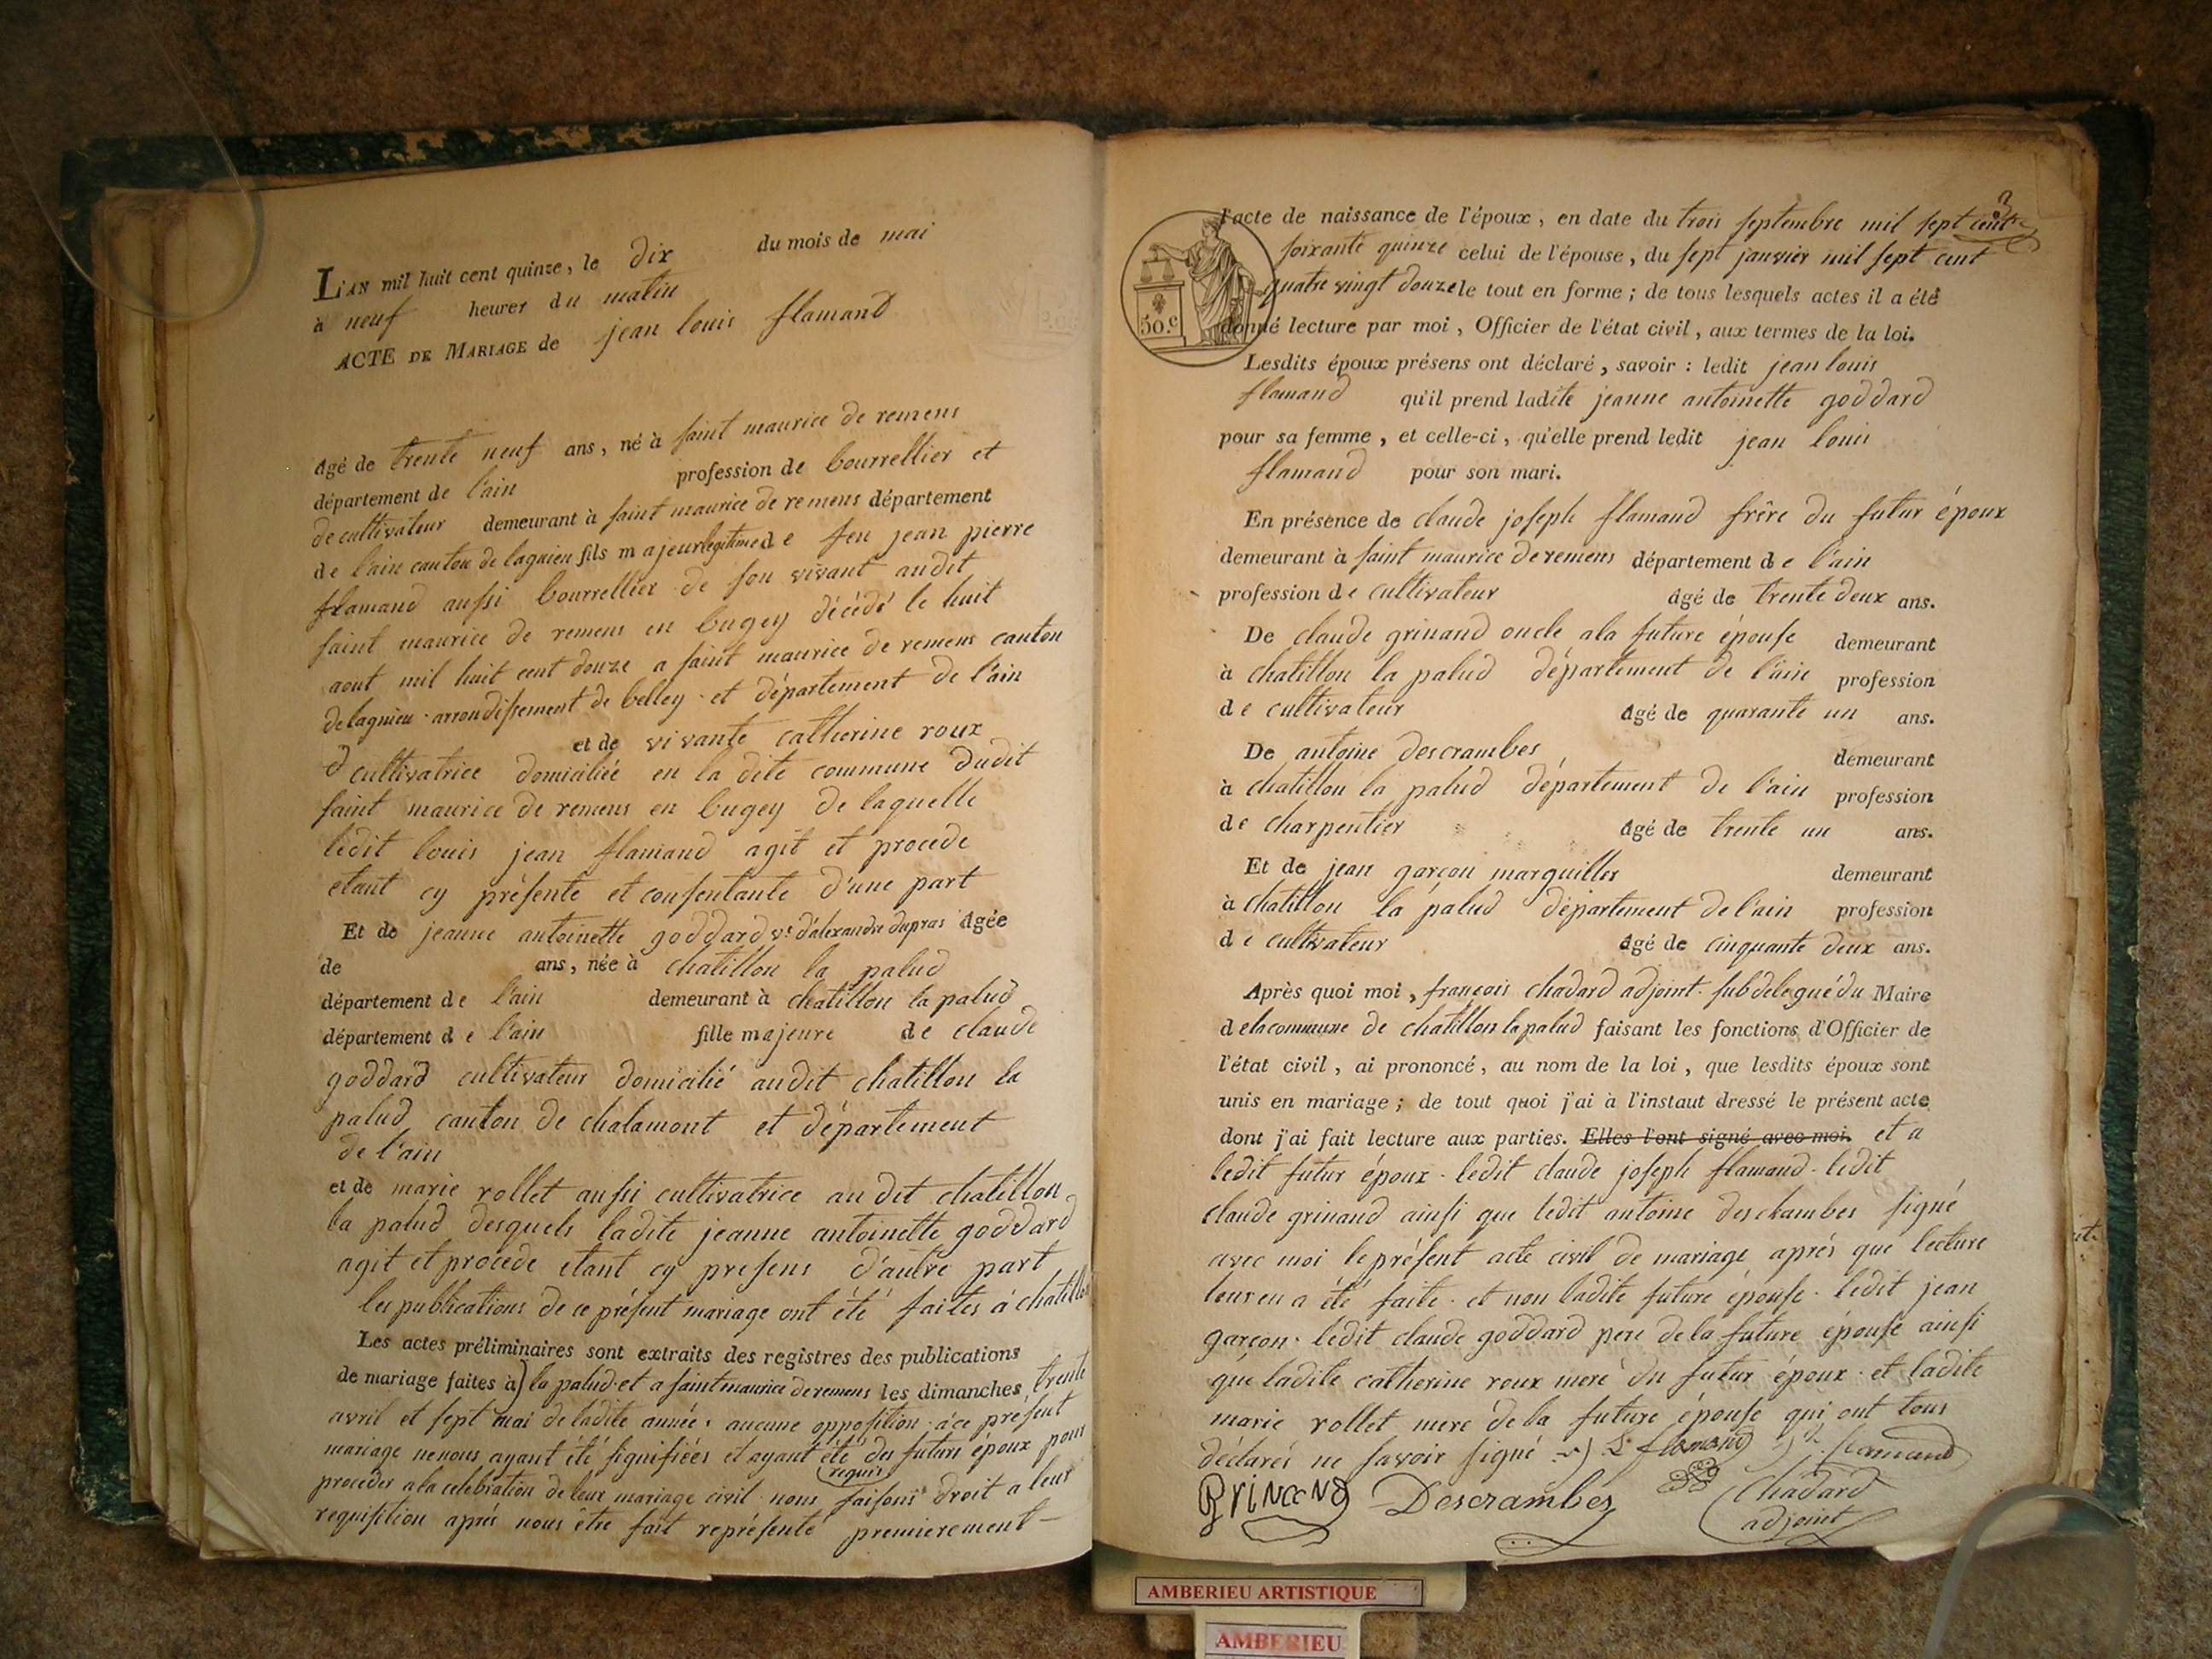 L'AN mil huit cent quinze, le dix du mois de mai
à neuf heures du matin
ACTE DE MARIAGE de jean louis flamand
agé de trente neuf ans, né à saint maurice de remens
département de l'ain profession de bourrellier et
de cultivateur demeurant à saint maurice de remens département
de l'ain canton de lagnieu fils majeur legitime de feu jean pierre
flamand aussi bourrellier de son vivant audit
saint maurice de remens en bugey décédé le huit
aout mil huit cent douze a saint maurice de remens canton
de lagnieu arrondissement de belley et département de l'ain
et de vivante catherine roux
cultivatrice domiciliée en la dite commune dudit
saint maurice de remens en bugey de laquelle
ledit louis jean flamand agit et procede
etant cy présente et consentante d'une part
Et de jeanne antoinette goddard ve d'alexandre dupras agée
de ans, née à chatillon la palud
département de l'ain demeurant à chatillon la palud
département de l'ain fille majeure de claude
goddard cultivateur domicilié audit chatillon la
palud canton de chalamont et département
de l'ain
et de marie rollet aussi cultivatrice au dit chatillon
la palud desquels ladite jeanne antoinette goddard
agit et procede etant cy presens d'autre part
les publications de ce présent mariage ont été faites à chatillon
Les actes préliminaires sont extraits des registres des publications
de mariage faites à) la palud et a saint maurice de remens les dimanches trente
avril et sept mai de ladite année. aucune opposition à ce présent
mariage ne nous ayant été signifiées et ayant été requis du futurs époux pour
proceder a la celebration de leur mariage civil nous faisons droit a leur
requisition après nous être fait représenté premierement
3
l'acte de naissance de l'époux, en date du trois septembre mil sept cent
soixante quinze celui de l'épouse, du sept janvier mil sept cent
quatre vingt douze le tout en forme; de tous lesquels actes il a été
donné lecture par moi, Officier de l'état civil, aux termes de la loi.
50.c
Lesdits époux présens ont déclaré, savoir : ledit jean louis
flamand qu'il prend ladite jeanne antoinette goddard
pour sa femme, et celle-ci, qu'elle prend ledit jean louis
flamand pour son mari.
En présence de claude joseph flamand frère du futur époux
demeurant à saint maurice de remens département de l'ain
profession de cultivateur agé de trente deux ans.
De claude grinand oncle a la future épouse demeurant
à chatillon la palud département de l'ain profession
de cultivateur agé de quarante un ans.
De antoine descrambes demeurant
à chatillon la palud département de l'ain profession
de charpentier agé de trente un ans.
Et de jean garçon marguiller demeurant
à chatillon la palud département de l'ain profession
de cultivateur agé de cinquante deux ans.
Après quoi moi, françois chadard adjoint subdelegué du Maire
de la commune de chatillon la palud faisant les fonctions d'Officier de
l'état civil, ai prononcé, au nom de la loi, que lesdits époux sont
unis en mariage; de tout quoi j'ai à l'instant dressé le présent acte
dont j'ai fait lecture aux parties. Elles l'ont signé avec moi. et a
ledit futur époux. ledit claude joseph flamand. ledit
claude grinand ainsi que ledit antoine deschambes signé
avec moi le présent acte civil de mariage aprés que lecture
leur en a été faite. et non ladite future épouse. ledit jean
garçon. ledit claude goddard pere de la future épouse ainsi
que ladite catherine roux mere du futur époux. et ladite
marie rollet mere de la future épouse qui ont tous
déclarés ne savoir signé L flamand flamand
Grinand Descrambes Chadard
adjoint
AMBERIEU ARTISTIQUE
AMBERIEU